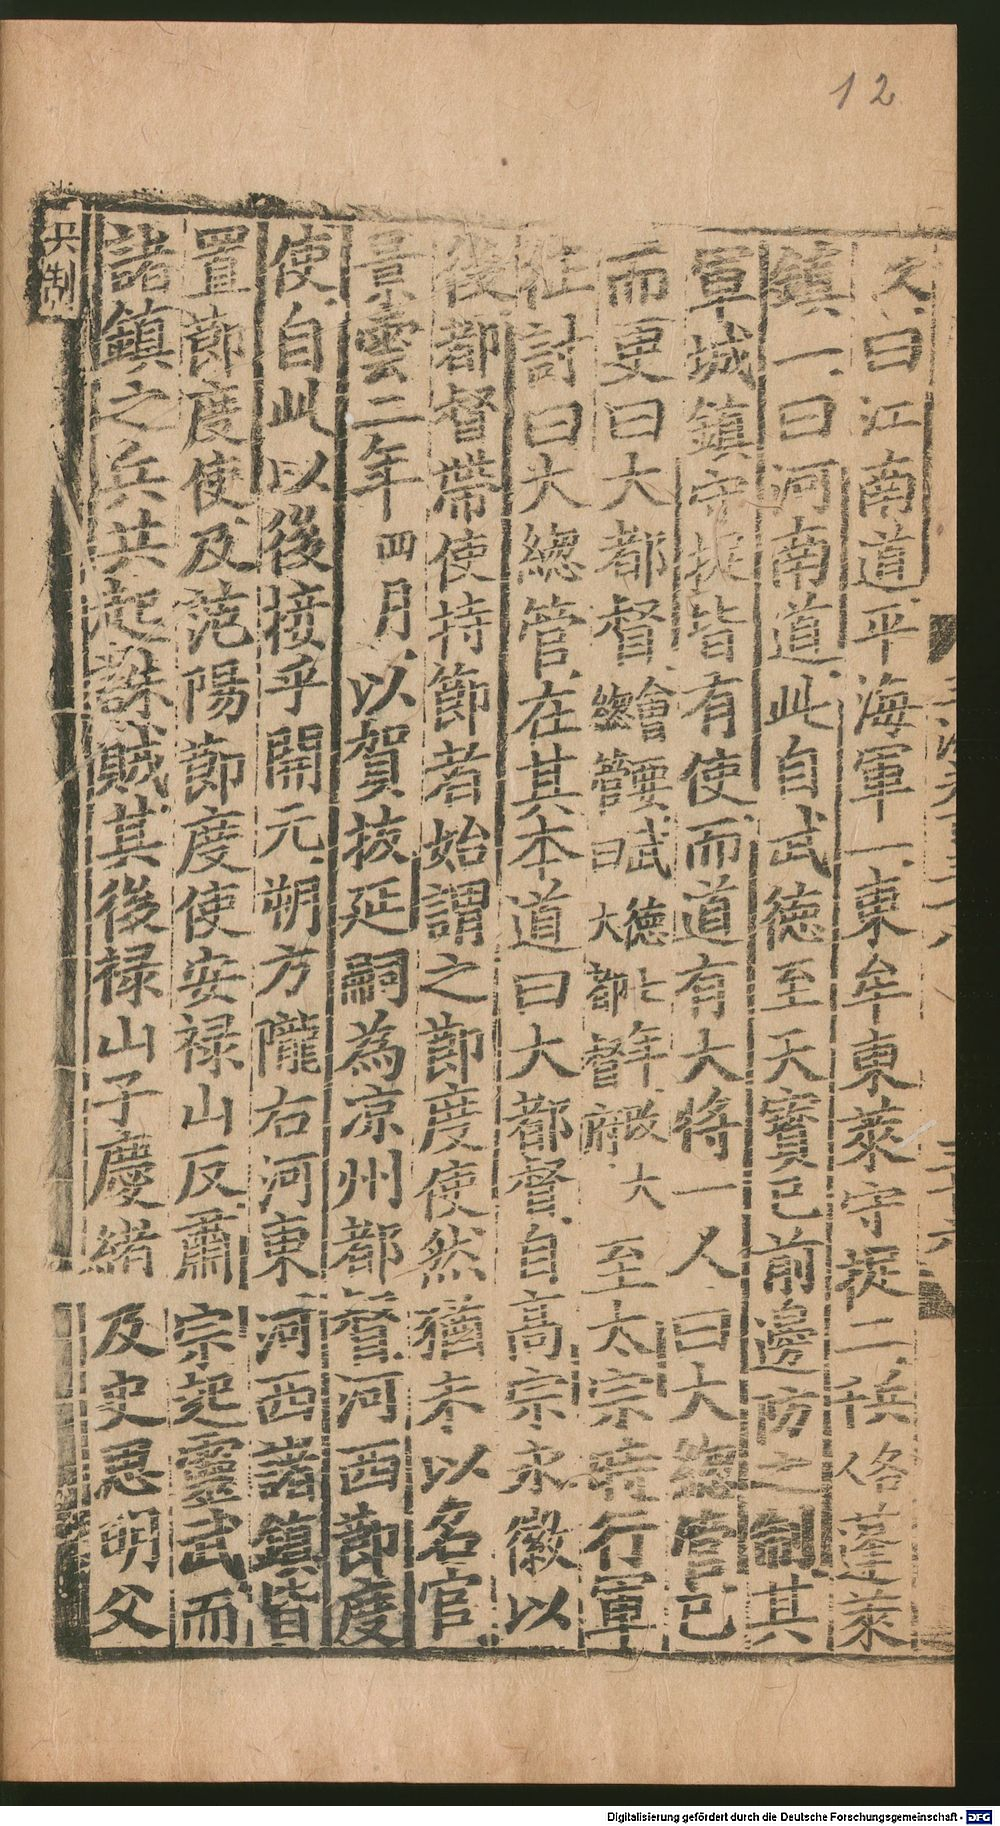 12
久曰江南道平海軍一東牟東萊守捉二蓬萊
鎮一曰河南道此自武德至天寶已前邊防之制其
軍城鎮守捉皆有使而道有大將一人曰大總管已
而更曰大都督會要武德七年改大總管曰大都督府至太宗時行軍
征討曰大總管在其本道曰大都督自高宗永徽以
後都督帶使持節者始謂之節度使然猶未以名官
景雲二年四月以賀拔延嗣為凉州都督河西節度
使自此以後接乎開元朔方隴右河東河西諸鎮皆
置節度使及范陽節度使安禄山反肅宗起靈武而
諸鎮之兵共起誅賊其後禄山子慶緒及史思明父
兵制
Digitalisierung gefördert durch die Deutsche Forschungsgemeinschaft - DFG